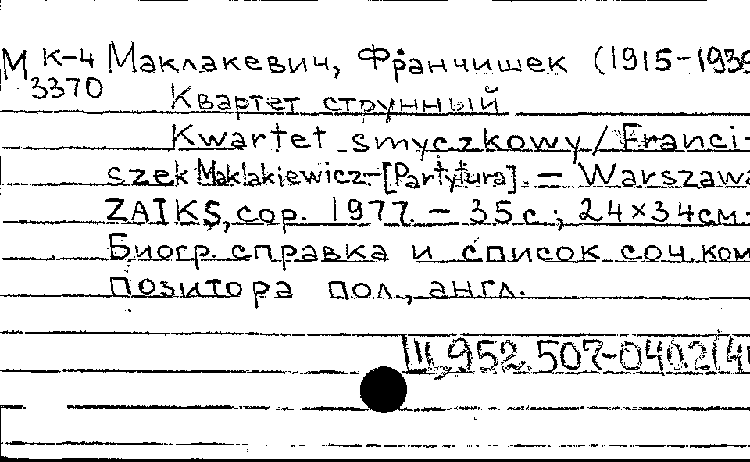 М К-4 Маклакевич, Франчишек (1915-1939
3370 Квартет струнный
Kwartet smyczkowy / Franci-
szek Maklakiewicz.-[Partytura]. - Warszawa
ZAIKS, cop. 1977. - 35 с.; 24×34см.
Биогр. справка и список соч. ком
позитора пол., англ.
Щ,952.507-040.2(4